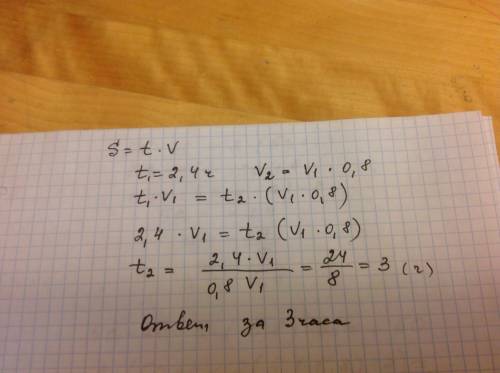 S = t · V
t₁ = 2,4 ч V₂ = V₁ · 0,8
t₁ · V₁ = t₂ · (V₁ · 0,8)
2,4 · V₁ = t₂ (V₁ · 0,8)
t₂ = 2,4 · V₁ / 0,8 V₁ = 24 / 8 = 3 (ч)
Ответ за 3 часа